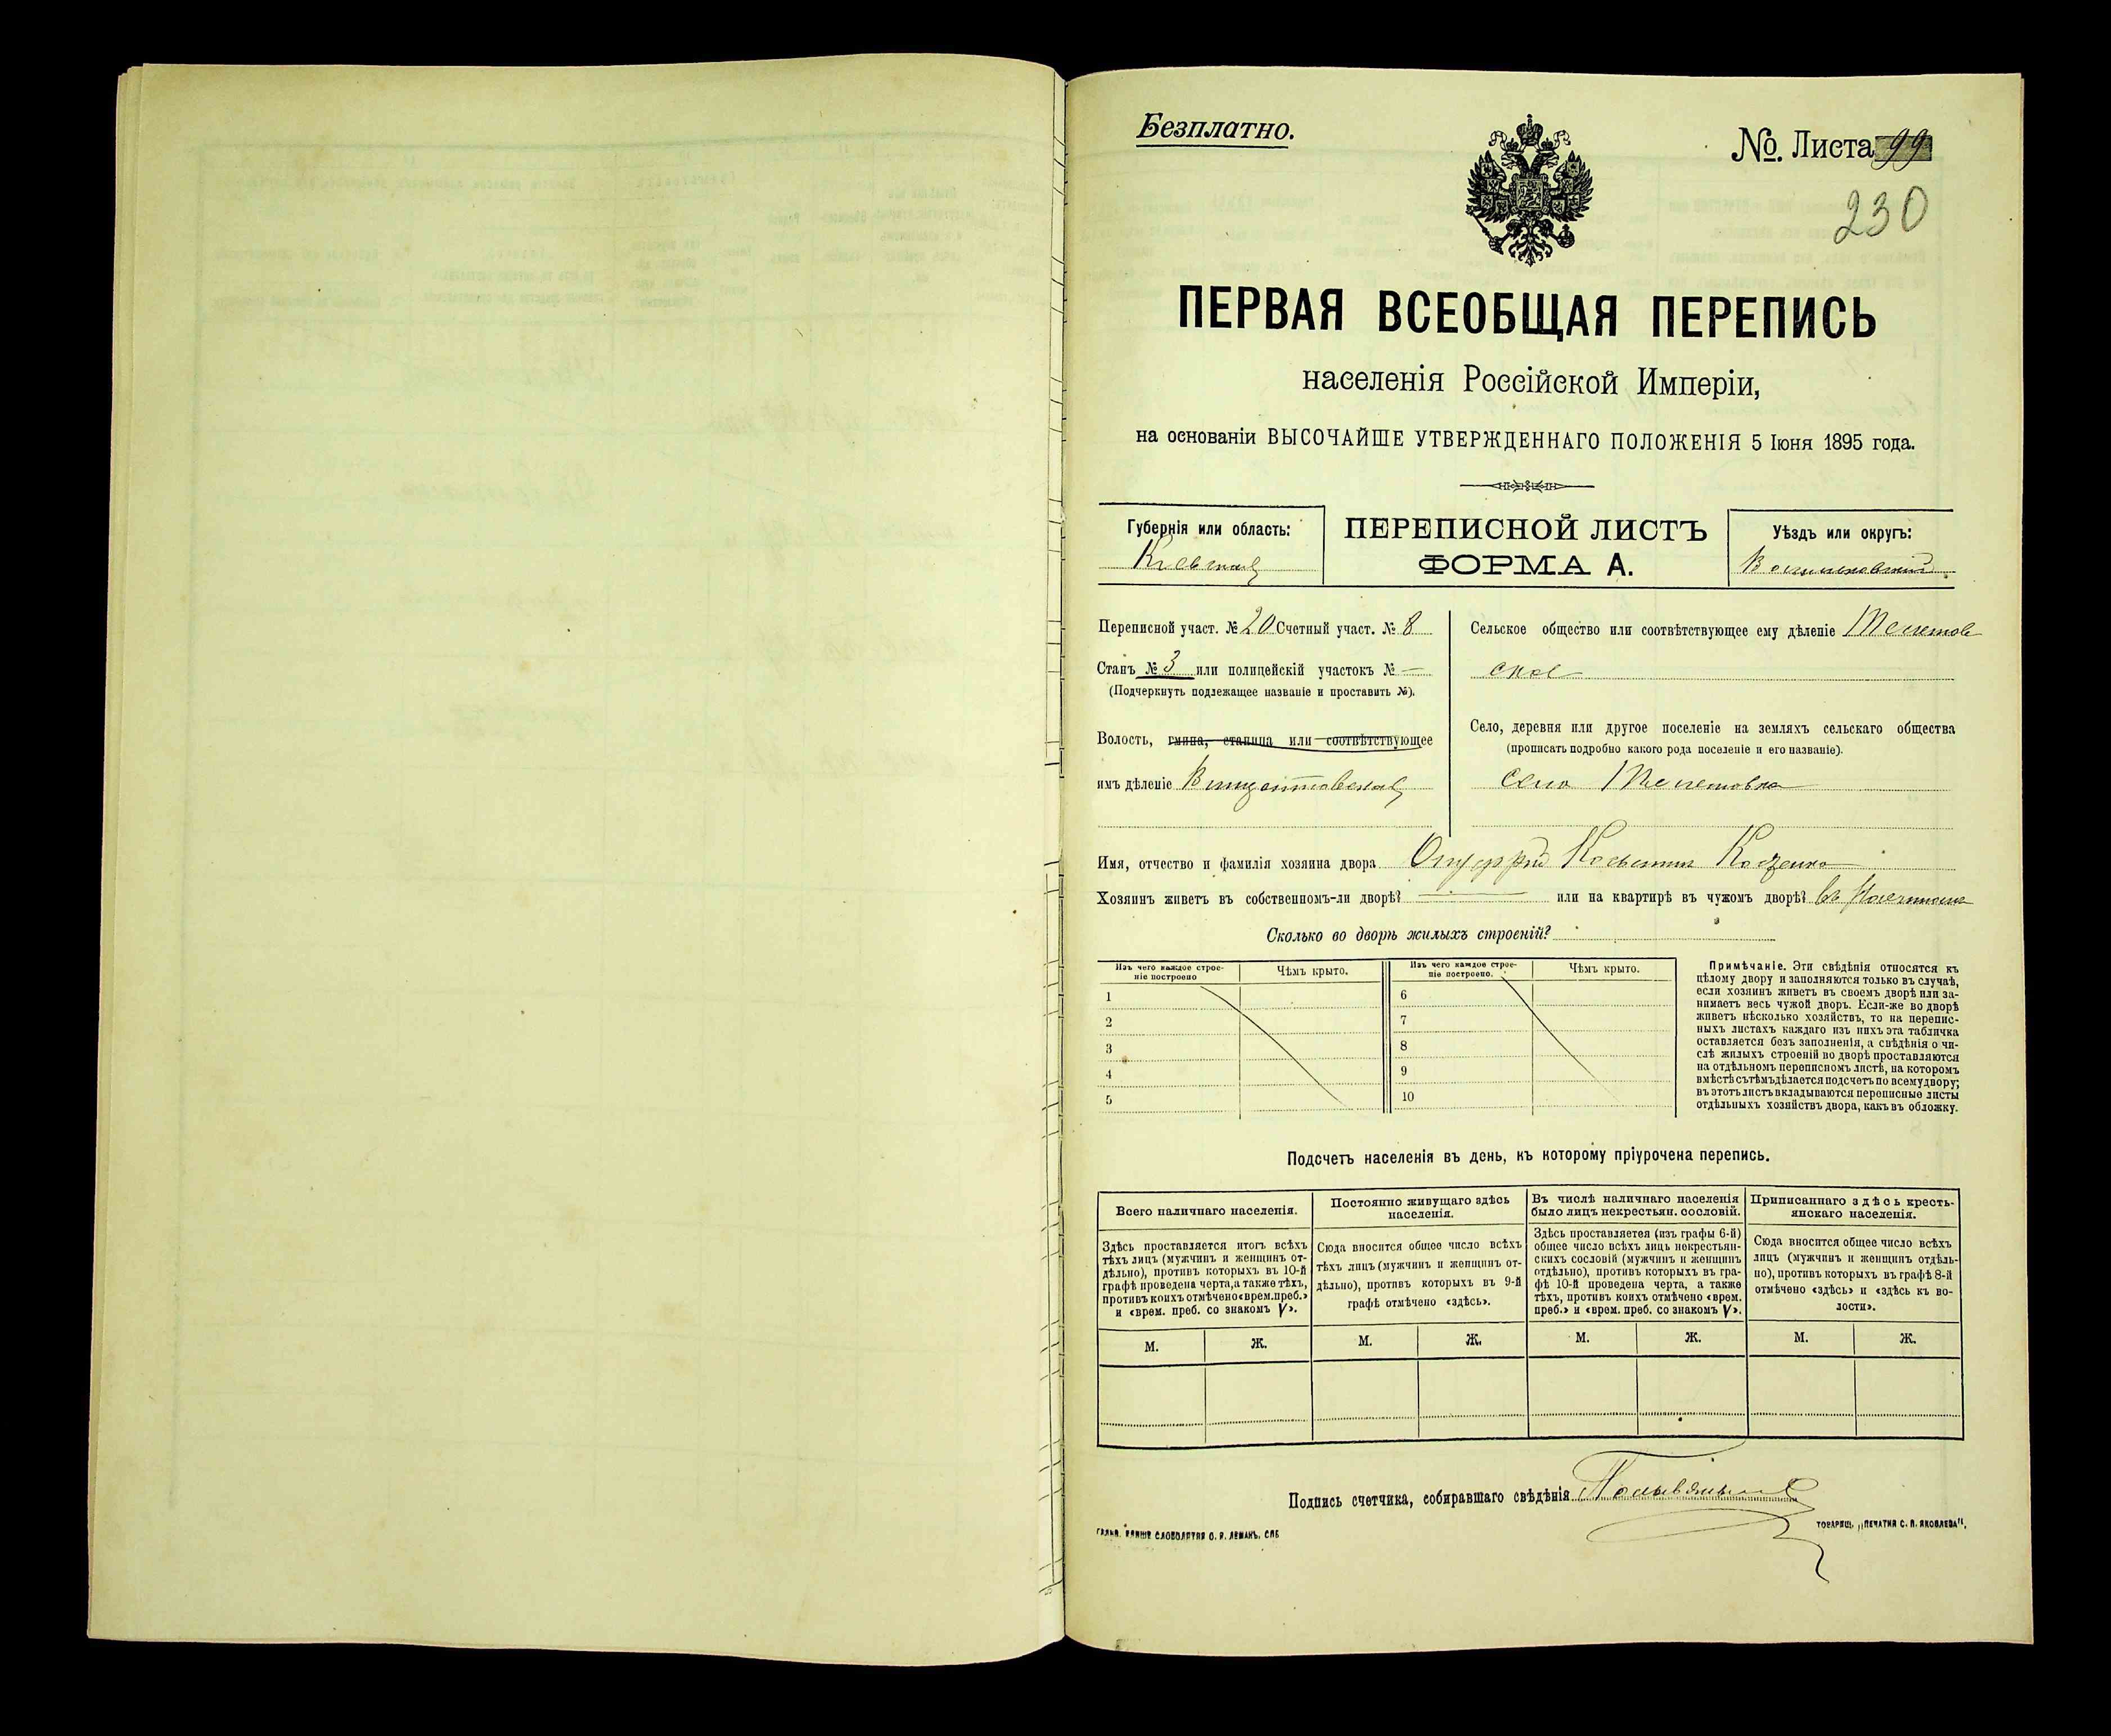 Безплатно.
№. Листа 99
230
ПЕРВАЯ ВСЕОБЩАЯ ПЕРЕПИСЬ
населенія Россійской Имперіи,
на основаніи ВЫСОЧАЙШЕ УТВЕРЖДЕННАГО ПОЛОЖЕНІЯ 5 Іюня 1895 года.
Губернія или область:
Кіевская
ПЕРЕПИСНОЙ ЛИСТЪ
ФОРМА А.
Уѣздъ или округъ:
Переписной участ. № 20 Счетный участ. № 8
Станъ № 3 или полицейскій участокъ № —
(Подчеркнуть подлежащее названіе и проставить №).
Волость, гмина, станица или соотвѣтствующее
имъ дѣленіе
Сельское общество или соотвѣтствующее ему дѣленіе
ское
Село, деревня или другое поселеніе на земляхъ сельскаго общества
(прописать подробно какого рода поселеніе и его названіе).
село
Имя, отчество и фамилія хозяина двора
Хозяинъ живетъ въ собственномъ-ли дворѣ? — или на квартирѣ въ чужомъ дворѣ? въ
Сколько во дворѣ жилыхъ строеній?
Изъ чего каждое строе-
ніе построено
Чѣмъ крыто.
Изъ чего каждое строе-
ніе построено.
Чѣмъ крыто.
1
2
3
4
5
6
7
8
9
10
Примѣчаніе. Эти свѣдѣнія относятся къ
цѣлому двору и заполняются только въ случаѣ,
если хозяинъ живетъ въ своемъ дворѣ или за-
нимаетъ весь чужой дворъ. Если-же во дворѣ
живетъ нѣсколько хозяйствъ, то на перепис-
ныхъ листахъ каждаго изъ нихъ эта табличка
оставляется безъ заполненія, а свѣдѣнія о чи-
слѣ жилыхъ строеній во дворѣ проставляются
на отдѣльномъ переписномъ листѣ, на которомъ
вмѣстѣ съ тѣмъ дѣлается подсчетъ по всему двору;
въ этотъ листъ вкладываются переписные листы
отдѣльныхъ хозяйствъ двора, какъ въ обложку.
Подсчетъ населенія въ день, къ которому пріурочена перепись.
Всего наличнаго населенія.
Здѣсь проставляется итогъ всѣхъ
тѣхъ лицъ (мужчинъ и женщинъ от-
дѣльно), противъ которыхъ въ 10-й
графѣ проведена черта, а также тѣхъ,
противъ коихъ отмѣчено «врем. преб.»
и «врем. преб. со знакомъ V».
М. Ж.
Постоянно живущаго здѣсь
населенія.
Сюда вносится общее число всѣхъ
тѣхъ лицъ (мужчинъ и женщинъ от-
дѣльно), противъ которыхъ въ 9-й
графѣ отмѣчено «здѣсь».
М. Ж.
Въ числѣ наличнаго населенія
было лицъ некрестьян. сословій.
Здѣсь проставляется (изъ графы 6-й)
общее число всѣхъ лицъ некрестьян-
скихъ сословій (мужчинъ и женщинъ
отдѣльно), противъ которыхъ въ гра-
фѣ 10-й проведена черта, а также
тѣхъ, противъ коихъ отмѣчено «врем.
преб.» и «врем. преб. со знакомъ V».
М. Ж.
Приписаннаго здѣсь кресть-
янскаго населенія.
Сюда вносится общее число всѣхъ
лицъ (мужчинъ и женщинъ отдѣль-
но), противъ которыхъ въ графѣ 8-й
отмѣчено «здѣсь» и «здѣсь къ во-
лости».
М. Ж.
Подпись счетчика, собиравшаго свѣдѣнія
СЛОВОЛИТНЯ О. И. ЛЕМАНЪ, СПБ
ТОВАРИЩ. „ПЕЧАТНЯ С. П. ЯКОВЛЕВА",